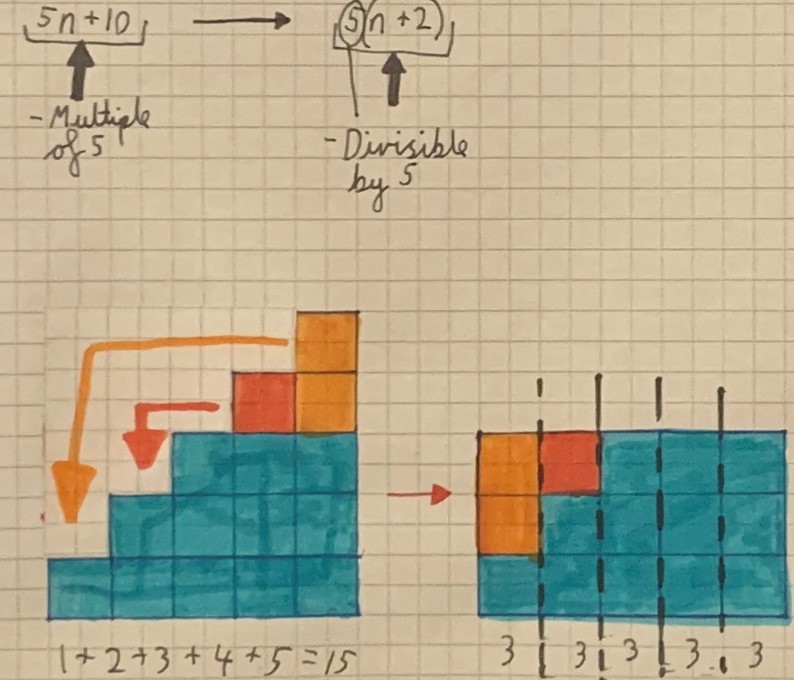 5n+10 → 5(n+2)
- Multiple
of 5
- Divisible
by 5
1+2+3+4+5=15
3 3 3 3 3